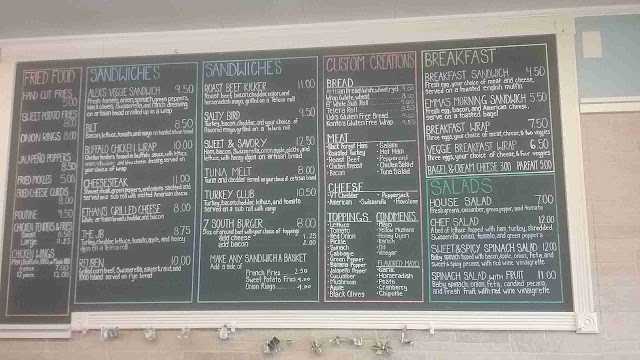 FRIED FOOD
HAND CUT FRIES
5.00
SWEET POTATO FRIES
8.00
ONION RINGS 8.00
JALAPEÑO POPPERS
8.50
FRIED PICKLES 5.00
FRIED CHEESE CURDS
8.00
POUTINE 9.50
CHICKEN TENDERS & FRIES
Small
Large 11.25
CHICKEN WINGS
6 piece 7.00
12 piece 12.00
SANDWICHES
ALEX'S VEGGIE SANDWICH 9.50
Fresh tomato, onion, spinach, green peppers,
black olives, Swisserella, and ranch dressing
on artisan bread or rolled up in a wrap
BLT 8.50
Bacon, lettuce, tomato, and mayo on toasted artisan bread
BUFFALO CHICKEN WRAP 10.00
Chicken tenders, tossed in buffalo sauce, with lettuce
your choice of wrap
CHEESESTEAK 11.00
Shaved steak, green peppers, and onions sautéed and
served on a sub roll with melted American cheese
ETHAN'S GRILLED CHEESE 8.00
White artisan bread, cheddar, and bacon
THE JB 8.75
Turkey, cheddar, lettuce, tomato, apple, and honey
dijon on artisan bread
REUBEN 10.00
Grilled corn beef, Swisserella, sauerkraut, and
1000 Island served on rye bread
SANDWICHES
ROAST BEEF KICKER 11.00
Roast beef, bacon, cheddar, onion, and
horseradish mayo, grilled on a Telera roll
SALTY BIRD 9.50
Turkey, bacon, cheddar, and your choice of
flavored mayo, grilled on a Telera roll
SWEET & SAVORY 12.50
Ham, bacon, Swisserella, onion, apple, pickle, and
lettuce, with honey dijon on artisan bread
TUNA MELT 8.00
Tuna and cheddar served on your choice of artisan bread
TURKEY CLUB 10.50
Turkey, bacon, cheddar, lettuce, and tomato
served on a sub roll with mayo
7 SOUTH BURGER 8.00
5oz of ground beef with your choice of toppings
add cheese 1.25
add bacon 2.00
MAKE ANY SANDWICH A BASKET
Add a side of
French Fries 2.50
Sweet Potato Fries 4.00
Onion Rings 4.00
CUSTOM CREATIONS
BREAD
Artisan Bread (white, wheat, rye)
Wrap (white, wheat)
8" White Sub Roll
Telera Roll
Udi's Gluten Free Bread
Gluten Free Wrap
MEAT
• Black Forest Ham
• Roasted Turkey
• Roast Beef
• Chicken Breast
• Bacon
• Salami
• Hot Ham
• Pepperoni
• Chicken Salad
• Tuna Salad
CHEESE
• VT Cheddar • Pepperjack
• American • Swisserella • Provolone
TOPPINGS
• Lettuce
• Tomato
• Red Onion
• Pickle
• Spinach
• Cabbage
• Green Pepper
• Banana Pepper
• Jalapeño Pepper
• Cucumber
• Mushroom
• Apple
• Black Olives
CONDIMENTS
• Mayo
• Yellow Mustard
• Honey Dijon
• Ranch
• Oil
• Vinegar
FLAVORED MAYO
• Garlic
• Horseradish
• Pesto
• Cranberry
• Chipotle
BREAKFAST
BREAKFAST SANDWICH 4.50
Fresh egg, your choice of meat and cheese,
served on a toasted english muffin
EMMA'S MORNING SANDWICH 5.50
Fresh egg, bacon, and American cheese,
served on a toasted bagel
BREAKFAST WRAP 7.50
Three eggs, your choice of meat, cheese, & two veggies
VEGGIE BREAKFAST WRAP 6.50
Three eggs, your choice of cheese, & four veggies
BAGEL & CREAM CHEESE 3.00 PARFAIT 5.00
SALADS
HOUSE SALAD 7.00
Fresh greens, cucumber, green pepper, and tomato
CHEF SALAD 12.00
A bed of lettuce topped with ham, turkey, shredded
Swisserella, onion, tomato, and green peppers
SWEET & SPICY SPINACH SALAD 12.00
Baby spinach topped with bacon, apple, onion, feta, and
sweet & spicy pecans, with red wine vinaigrette
SPINACH SALAD WITH FRUIT 11.00
Baby spinach, onion, feta, candied pecans,
and fresh fruit with red wine vinaigrette